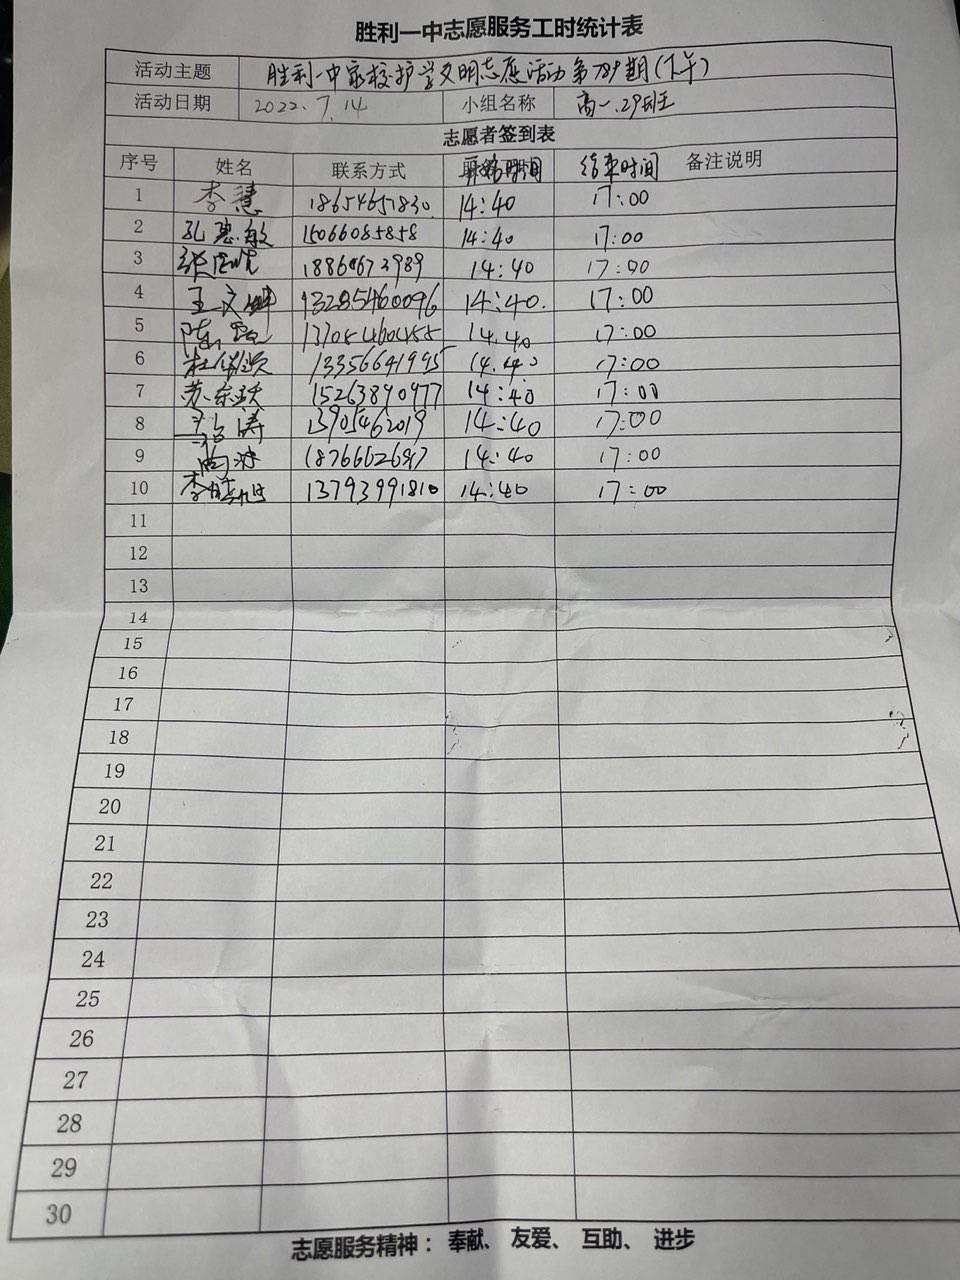 胜利一中志愿服务工时统计表
活动主题 胜利一中家校护学文明志愿活动第789期(下午)
活动日期 2022.7.14 小组名称 高一.29班
志愿者签到表
序号 姓名 联系方式 开始时间 结束时间 备注说明
1 李慧 18654651830 14:40 17:00
2 孔惠敏 15066085858 14:40 17:00
3 14:40 17:00
4 王文 13285460096 14:40 17:00
5 陈 14.40 17:00
6 杜 13356641995 14.40 17:00
7 苏东跃 15263890977 14:40 17:00
8 涛 13905462019 14:40 17:00
9 14:40 17:00
10 李 13793991810 14:40 17:00
11
12
13
14
15
16
17
18
19
20
21
22
23
24
25
26
27
28
29
30
志愿服务精神： 奉献、 友爱、 互助、 进步